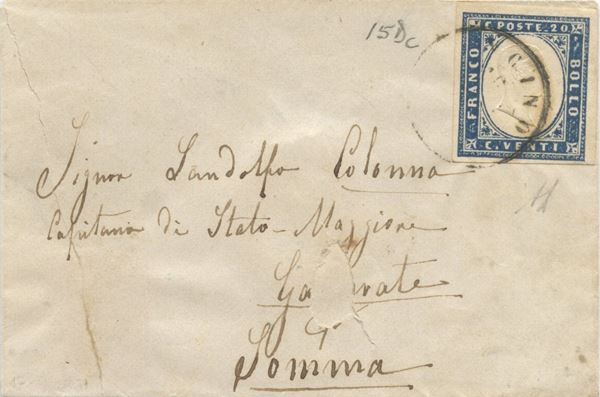 15Dc
C. POSTE 20.
FRANCO
BOLLO
C. VENTI
Signor Landolfo Colonna
Capitano di Stato-Maggiore
Ga rate
Somma